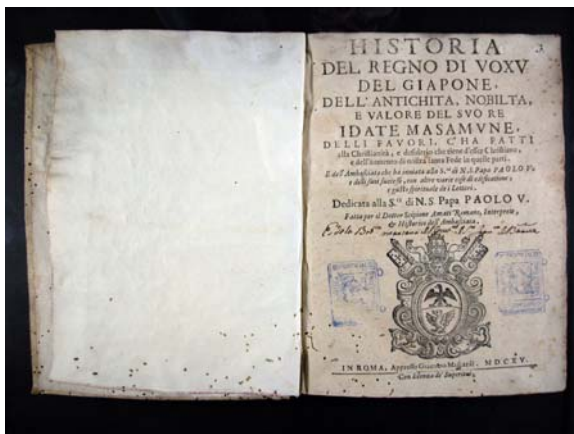 HISTORIA
DEL REGNO DI VOXV
DEL GIAPONE,
DELL'ANTICHITA, NOBILTA,
E VALORE DEL SVO RE
IDATE MASAMVNE,
DELLI FAVORI, C'HA FATTI
alla Christianità, e desiderio che tiene d'esser Christiano,
e dell'aumento di nostra santa Fede in quelle parti.
E dell'Ambasciata che hà inviata alla S.tà di N.S. Papa PAOLO V.
e delli suoi successi, con altre varie cose di edificatione,
e gusto spirituale de i Lettori.
Dedicata alla S.tà di N.S. Papa PAOLO V.
Fatta per il Dottor Scipione Amati Romano, Interprete,
& Historico dell'Ambasciata.
IN ROMA, Appresso Giacomo Mascardi. MDCXV.
Con licenza de' Superiori.